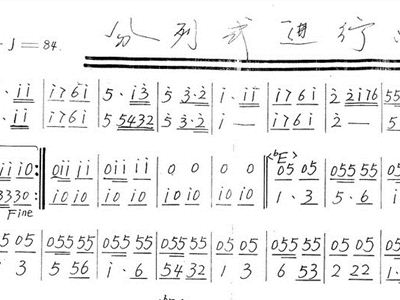 ♩= 84. 分列式进行
· i̇i̇ | i̇76i̇ | 5 · i̇3̇ | 5̇ 3̇·2̇ | i̇ · i̇i̇ | i̇76i̇ | 2̇ 2̇i̇76 | 55
· i̇i̇ | i̇76i̇ | 5 5432 | 5̇ 3̇·2̇ | i̇ — | i̇76i̇ | 2̇ — | 5
i̇i̇ i̇0 :‖ 0i̇i̇ i̇i̇ | 0i̇i̇ i̇i̇ | 0 0 | 0 0 ‖ <ᵇE> 05 05 | 055 55 | 05 05
3330 :‖ i̇0 i̇0 | i̇0 i̇0 | i̇0 i̇0 | i̇0 i̇0 ‖ 1 · 3 | 5 · 6 | i̇
Fine
05 05 | 055 55 | 055 55 | 055 55 | 05 05 | 055 55 | 05 05 | 055
i̇ 3 | 5 56 | i̇ · 6 | 5432 | 1 3 | 6 53 | 2 22 | 1 ·